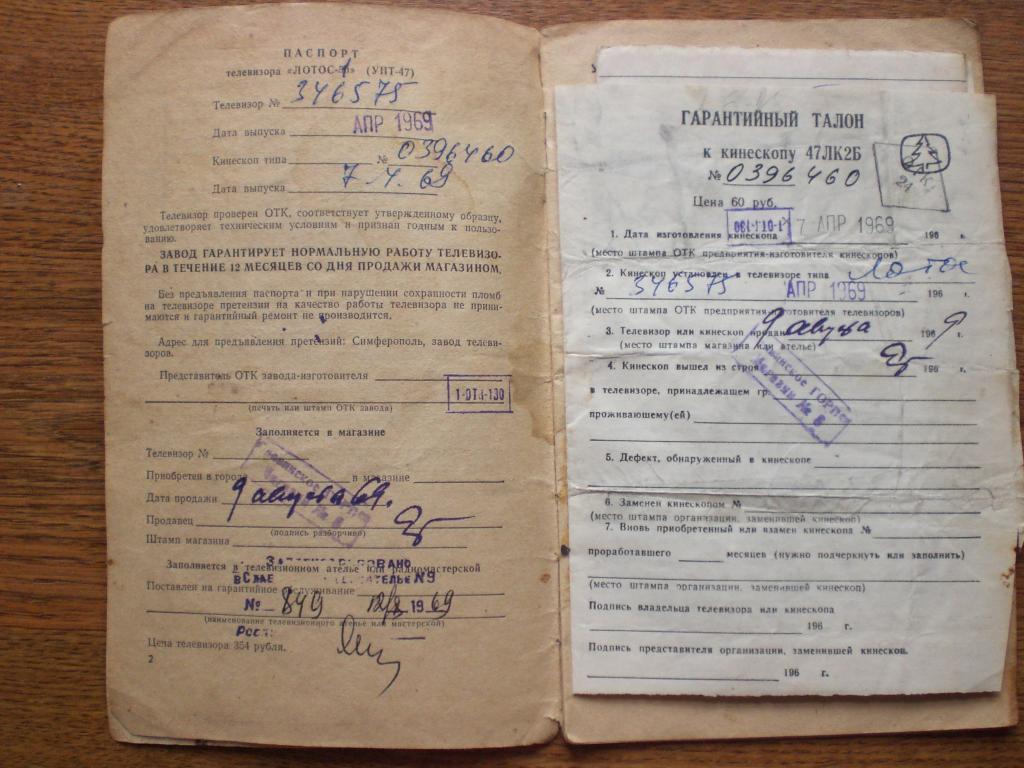 ПАСПОРТ
телевизора «ЛОТОС- » (УНТ-47)
Телевизор № 346575
Дата выпуска АПР 1969
Кинескоп типа № 0396460
Дата выпуска
Телевизор проверен ОТК, соответствует утвержденному образцу,
удовлетворяет техническим условиям и признан годным к пользо-
ванию.
ЗАВОД ГАРАНТИРУЕТ НОРМАЛЬНУЮ РАБОТУ ТЕЛЕВИЗО-
РА В ТЕЧЕНИЕ 12 МЕСЯЦЕВ СО ДНЯ ПРОДАЖИ МАГАЗИНОМ.
Без предъявления паспорта и при нарушении сохранности пломб
на телевизоре претензии на качество работы телевизора не прини-
маются и гарантийный ремонт не производится.
Адрес для предъявления претензий: Симферополь, завод телеви-
зоров.
Представитель ОТК завода-изготовителя
1-ОТК-130
(печать или штамп ОТК завода)
Заполняется в магазине
Телевизор №
Приобретен в городе в магазине
Дата продажи 9 августа 69.
Продавец
(подпись разборчиво)
Штамп магазина
Заполняется в телевизионном ателье или радиомастерской
АТЕЛЬЕ №9
Поставлен на гарантийное обслуживание
№ 849 12/8 1969
(наименование телевизионного ателье или мастерской)
Цена телевизора 354 рубля.
2
ГАРАНТИЙНЫЙ ТАЛОН
к кинескопу 47ЛК2Б
№ 0396460
Цена 60 руб.
24
1. Дата изготовления кинескопа 7 АПР 1969 196 г.
(место штампа ОТК предприятия-изготовителя кинескопов)
2. Кинескоп установлен в телевизоре типа Лотос
№ 346575 АПР 1969 196 г.
(место штампа ОТК предприятия-изготовителя телевизоров)
3. Телевизор или кинескоп продан 9 августа 1969
(место штампа магазина или ателье)
4. Кинескоп вышел из строя 196 г.
в телевизоре, принадлежащем гр.
проживающему(ей)
5. Дефект, обнаруженный в кинескопе
6. Заменен кинескопом №
(место штампа организации, заменившей кинескоп)
7. Вновь приобретенный или взамен кинескопа №
проработавшего месяцев (нужно подчеркнуть или заполнить)
(место штампа организации, заменившей кинескоп)
Подпись владельца телевизора или кинескопа
196 г.
Подпись представителя организации, заменившей кинескоп.
196 г.